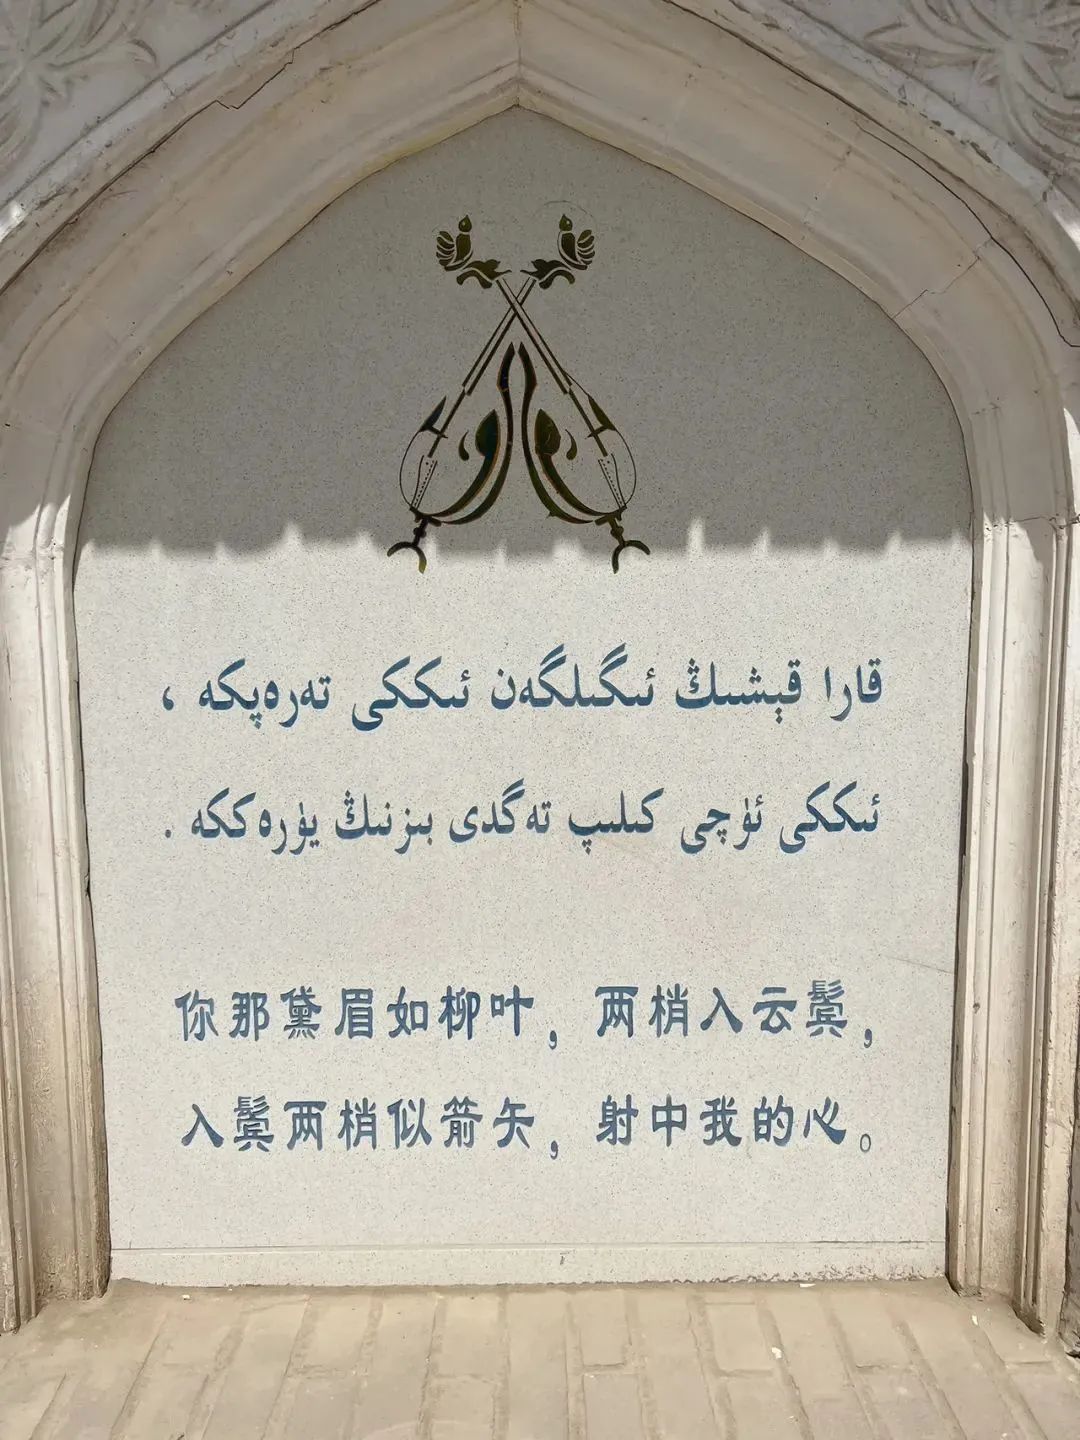 قارا قېشىڭ ئىگىلگەن ئىككى تەرەپكە ،
ئىككى ئۈچى كىلىپ تەگدى بىزنىڭ يۈرەككە .
你那黛眉如柳叶，两梢入云鬓，
入鬓两梢似箭矢，射中我的心。